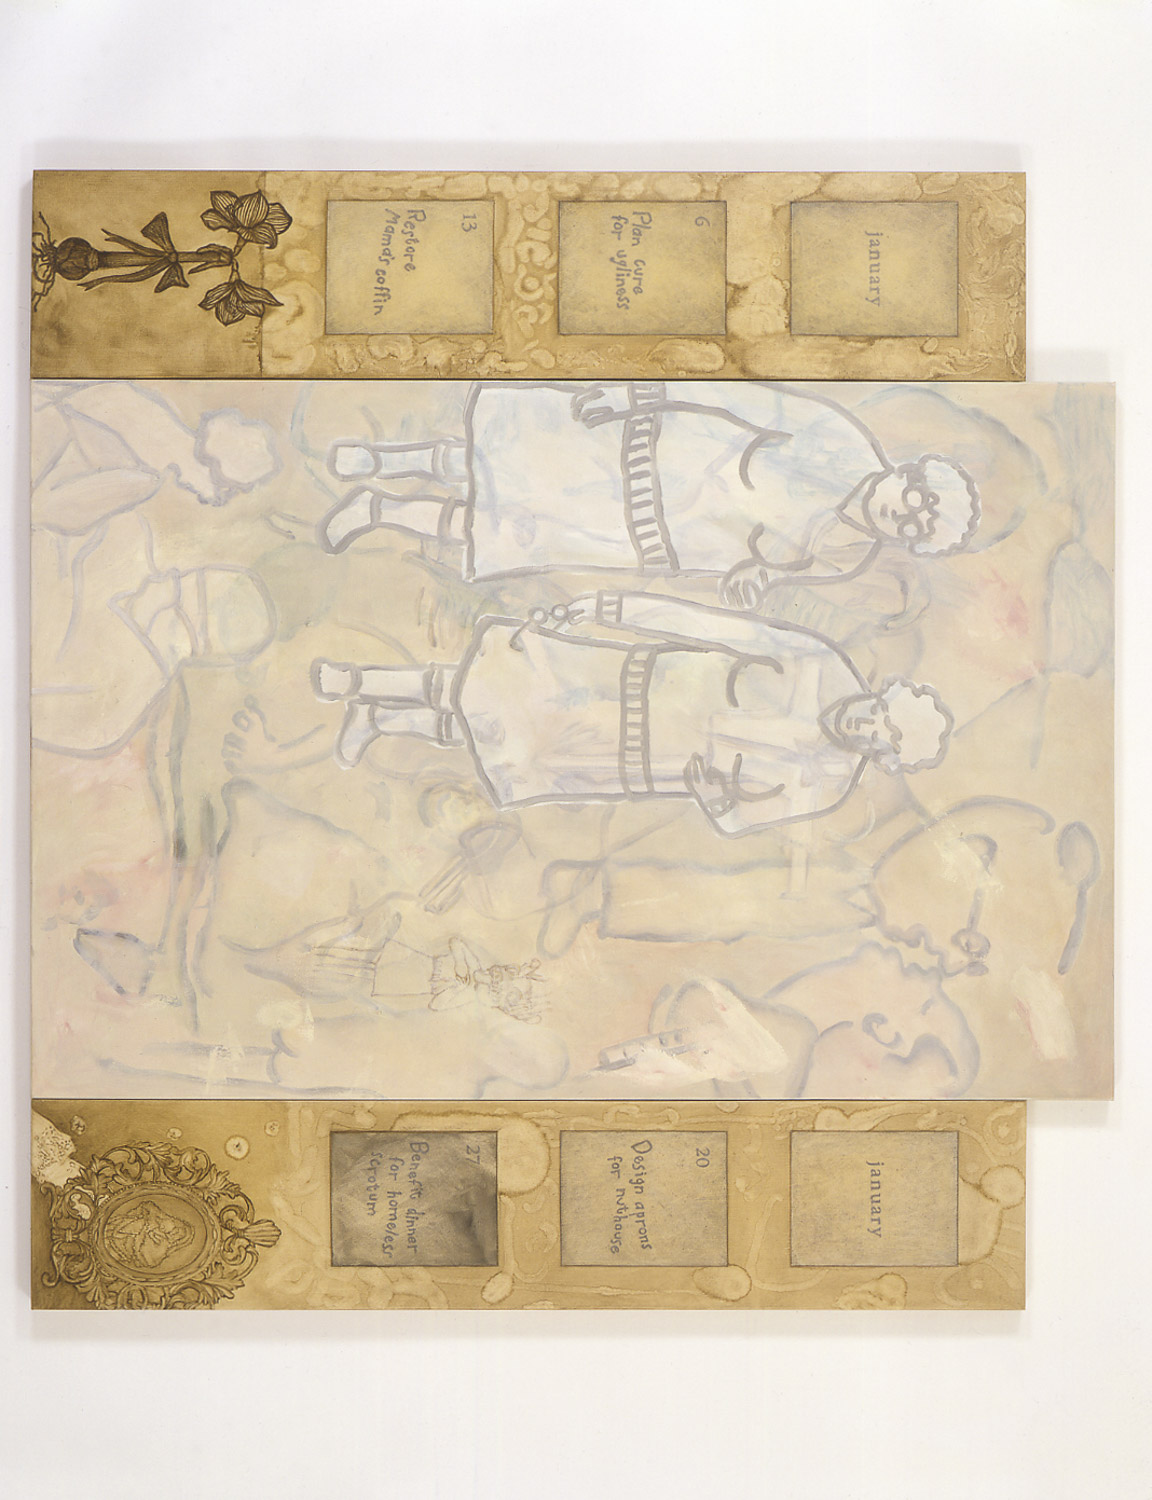 january
6
Plan cure
for ugliness
13
Restore
Mama's coffin
january
20
Design aprons
for nuthouse
27
Benefit dinner
for homeless
scrotum